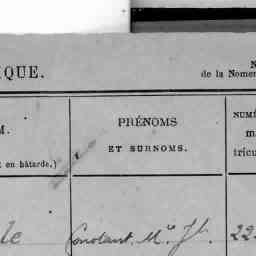 IQUE.
N
de la Nomen
M.
PRÉNOMS
NUMÉ
ET SURNOMS.
m
t en bâtarde.)
tricu
le Constant, Mie Jh. 22